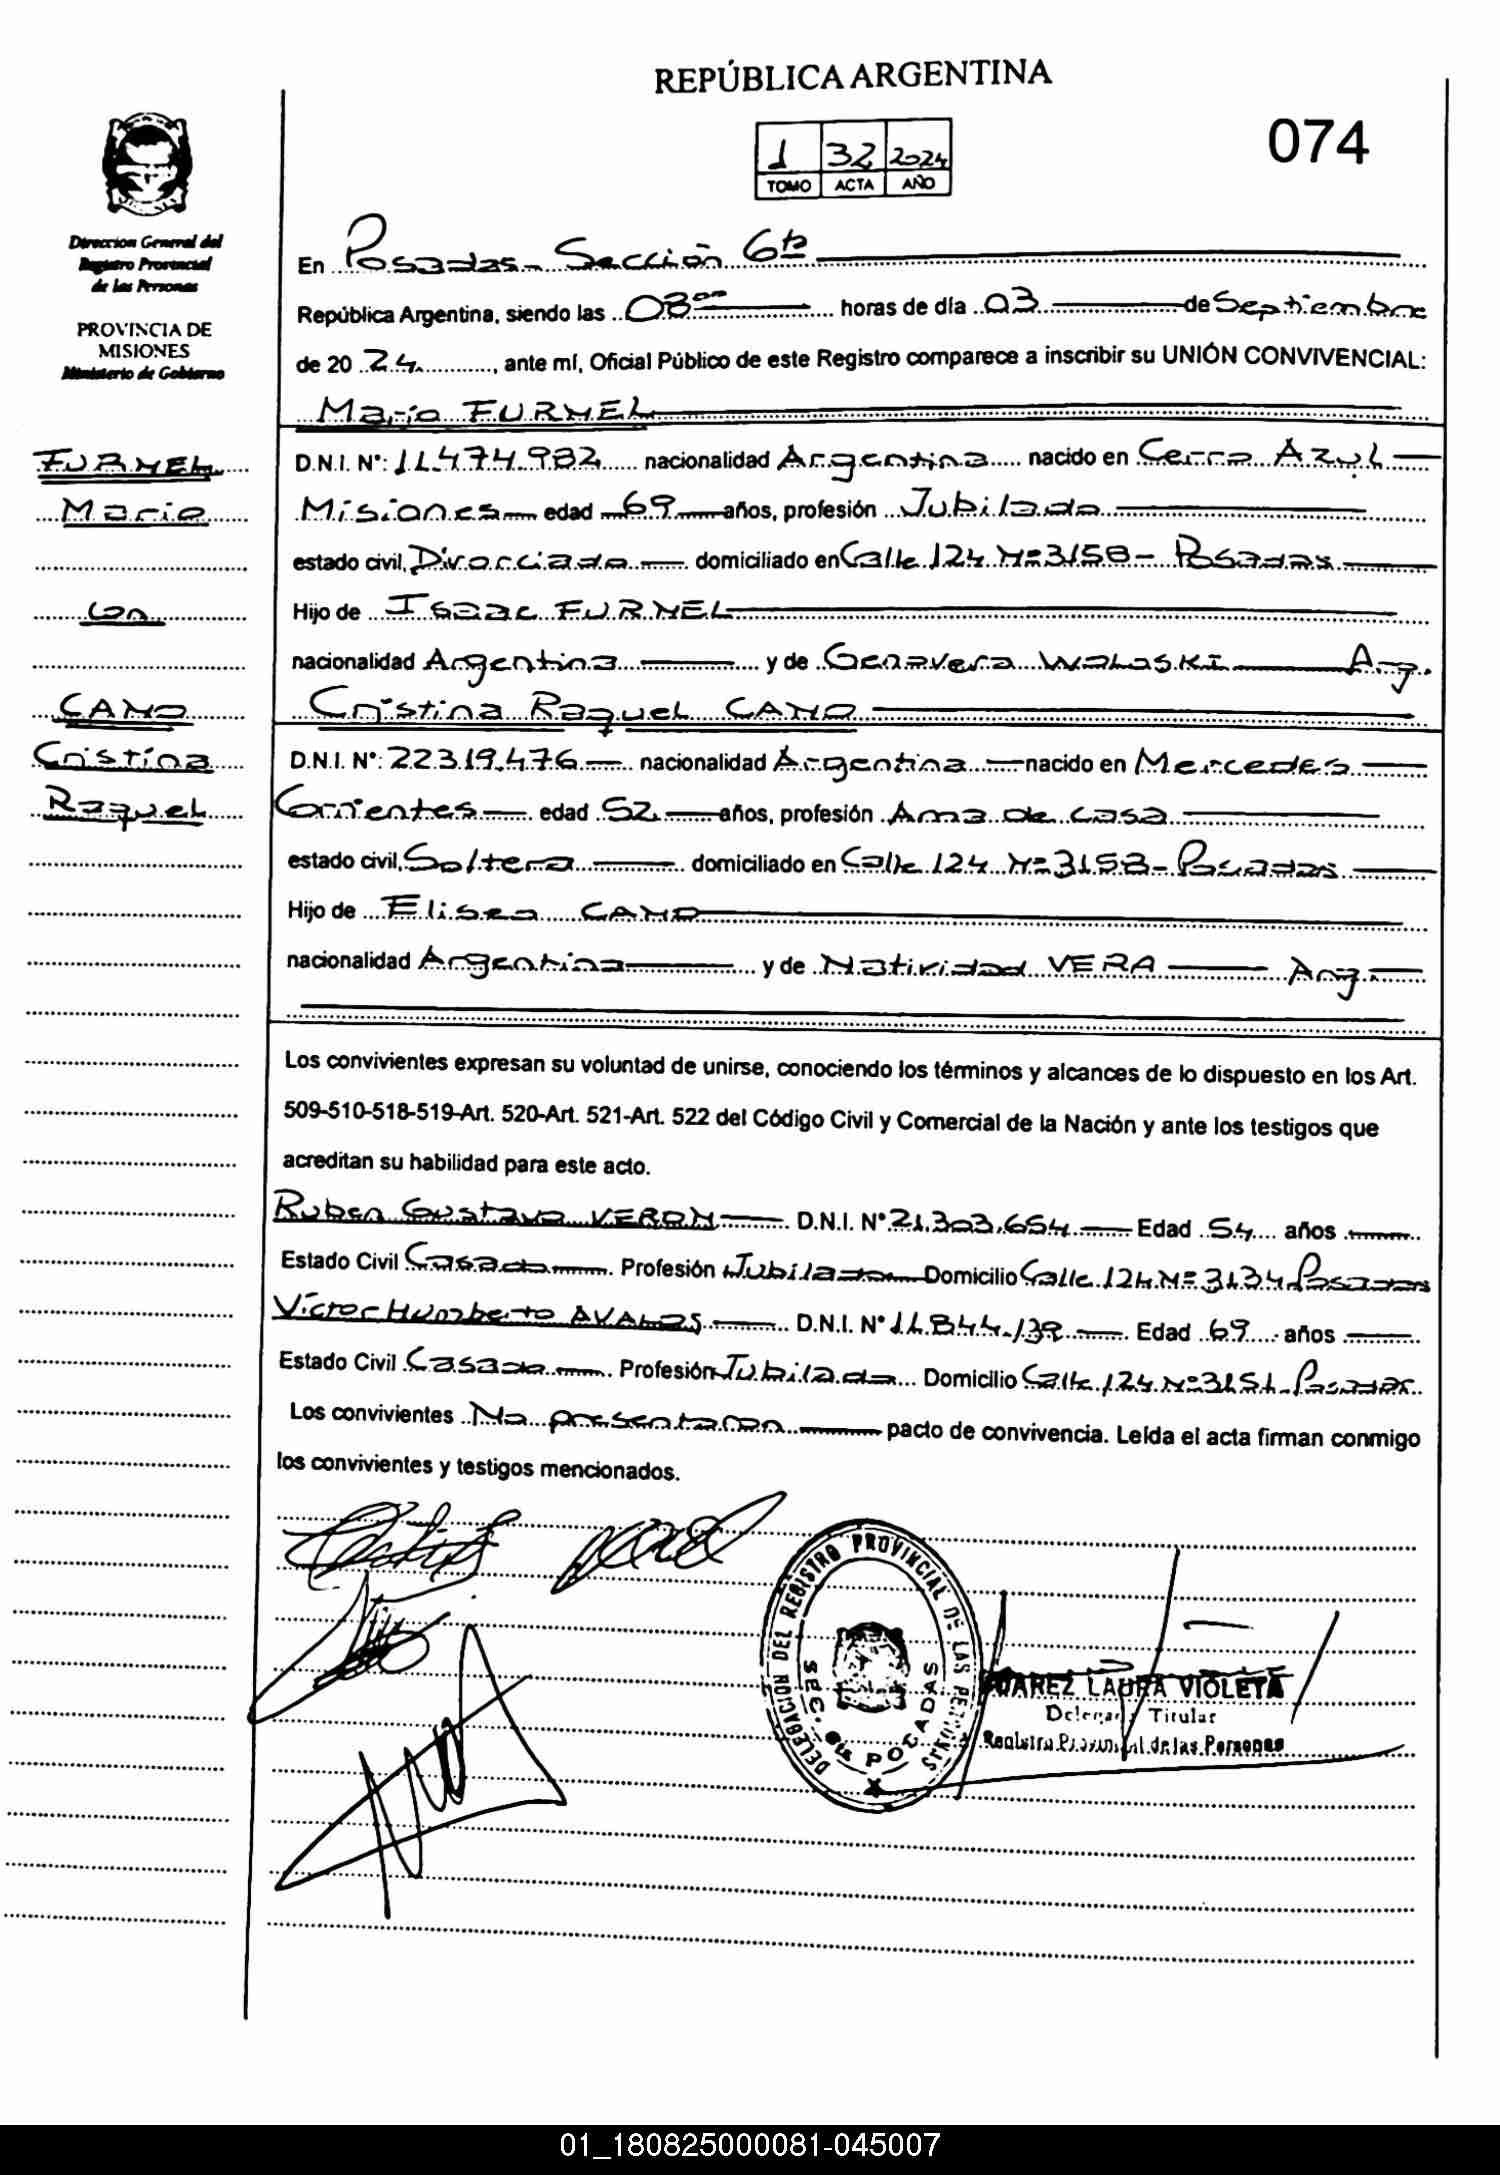 REPÚBLICA ARGENTINA
074
1 32 2024
TOMO ACTA AÑO
Direccion General del
Registro Provincial
de las Personas
PROVINCIA DE
MISIONES
Ministerio de Gobierno
FURMEL
Mario
con
CANO
Cristina
Raquel
En Posadas - Sección 6ta
República Argentina, siendo las 08 horas de día 03 de Septiembre
de 20 24, ante mí, Oficial Público de este Registro comparece a inscribir su UNIÓN CONVIVENCIAL:
Mario FURMEL
D.N.I. N°: 11.474.982 nacionalidad Argentina nacido en Cerro Azul
Misiones edad 69 años, profesión Jubilado
estado civil, Divorciado domiciliado en Calle 124 N=3158- Posadas
Hijo de Isaac FURMEL
nacionalidad Argentina y de Genavera WALASKI Arg.
Cristina Raquel CANO
D.N.I. N°: 22.319.476 nacionalidad Argentina nacido en Mercedes
Corrientes edad 52 años, profesión Ama de casa
estado civil, Soltera domiciliado en Calle 124 N=3158- Posadas
Hijo de Eliseo CANO
nacionalidad Argentina y de Natividad VERA Arg.
Los convivientes expresan su voluntad de unirse, conociendo los términos y alcances de lo dispuesto en los Art.
509-510-518-519-Art. 520-Art. 521-Art. 522 del Código Civil y Comercial de la Nación y ante los testigos que
acreditan su habilidad para este acto.
Ruben Gustavo VERON D.N.I. N° 21.303.654 Edad 54 años
Estado Civil Casado Profesión Jubilado Domicilio Calle 124 N=3134 Posadas
Victor Humberto AVALOS D.N.I. N° 11.844.139 Edad 69 años
Estado Civil Casado Profesión Jubilado Domicilio Calle 124 N=3151- Posadas
Los convivientes No presentaron pacto de convivencia. Leída el acta firman conmigo
los convivientes y testigos mencionados.
DELEGACION DEL REGISTRO PROVINCIAL DE LAS PERSONAS
SEC. 6ta POSADAS
SUAREZ LAURA VIOLETA
Delegada Titular
Registro Provincial de las Personas
01_180825000081-045007